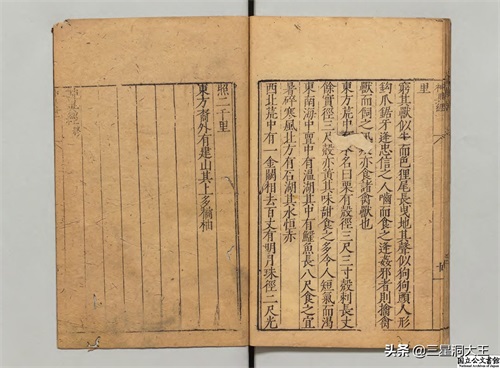 里
窮其獸似牛而色狸尾長曳地其聲似狗狗頭人形
鈎爪鋸牙逢忠信之人嚙而食之逢姦邪者則擒禽
獸而飼之亦食諸禽獸也
東方荒中木名曰栗有殼徑三尺三寸殼刺長丈
餘實徑三尺殼亦黃其味甜食之多令人短氣而渴
東南海中有溫湖其中有鰩魚長八尺食之宜
暑碎寒風北方有石湖其水恒赤
西北荒中有一金闕相去百丈有明月珠徑二尺光
照二千里
東方裔外有建山其上多橘柚
国立公文書館
National Archives of Japan
头条 @三星洞大王